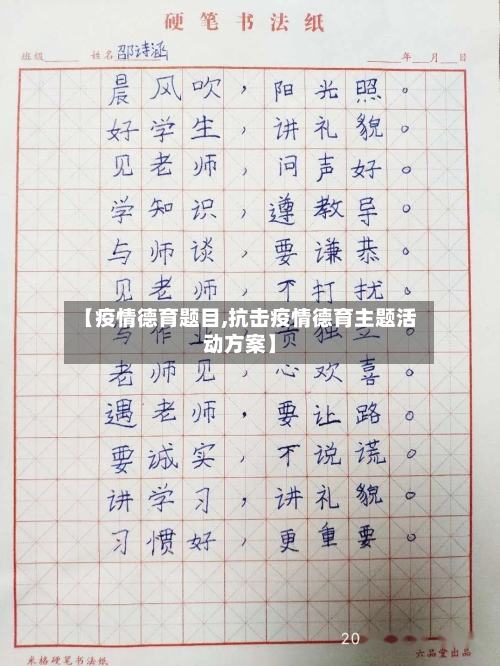 硬笔书法纸
班级 姓名 邵诗涵 年 月 日
晨风吹，阳光照。
好学生，讲礼貌。
见老师，问声好。
学知识，遵教导。
与师谈，要谦恭。
见老师，不打扰。
【疫情德育题目,抗击疫情德育主题活
动方案】
与作业，贵独立。
老师见，心欢喜。
遇老师，要让路。
要诚实，不说谎。
讲学习，讲礼貌。
习惯好，更重要。
20
米格硬笔书法纸 六品堂出品